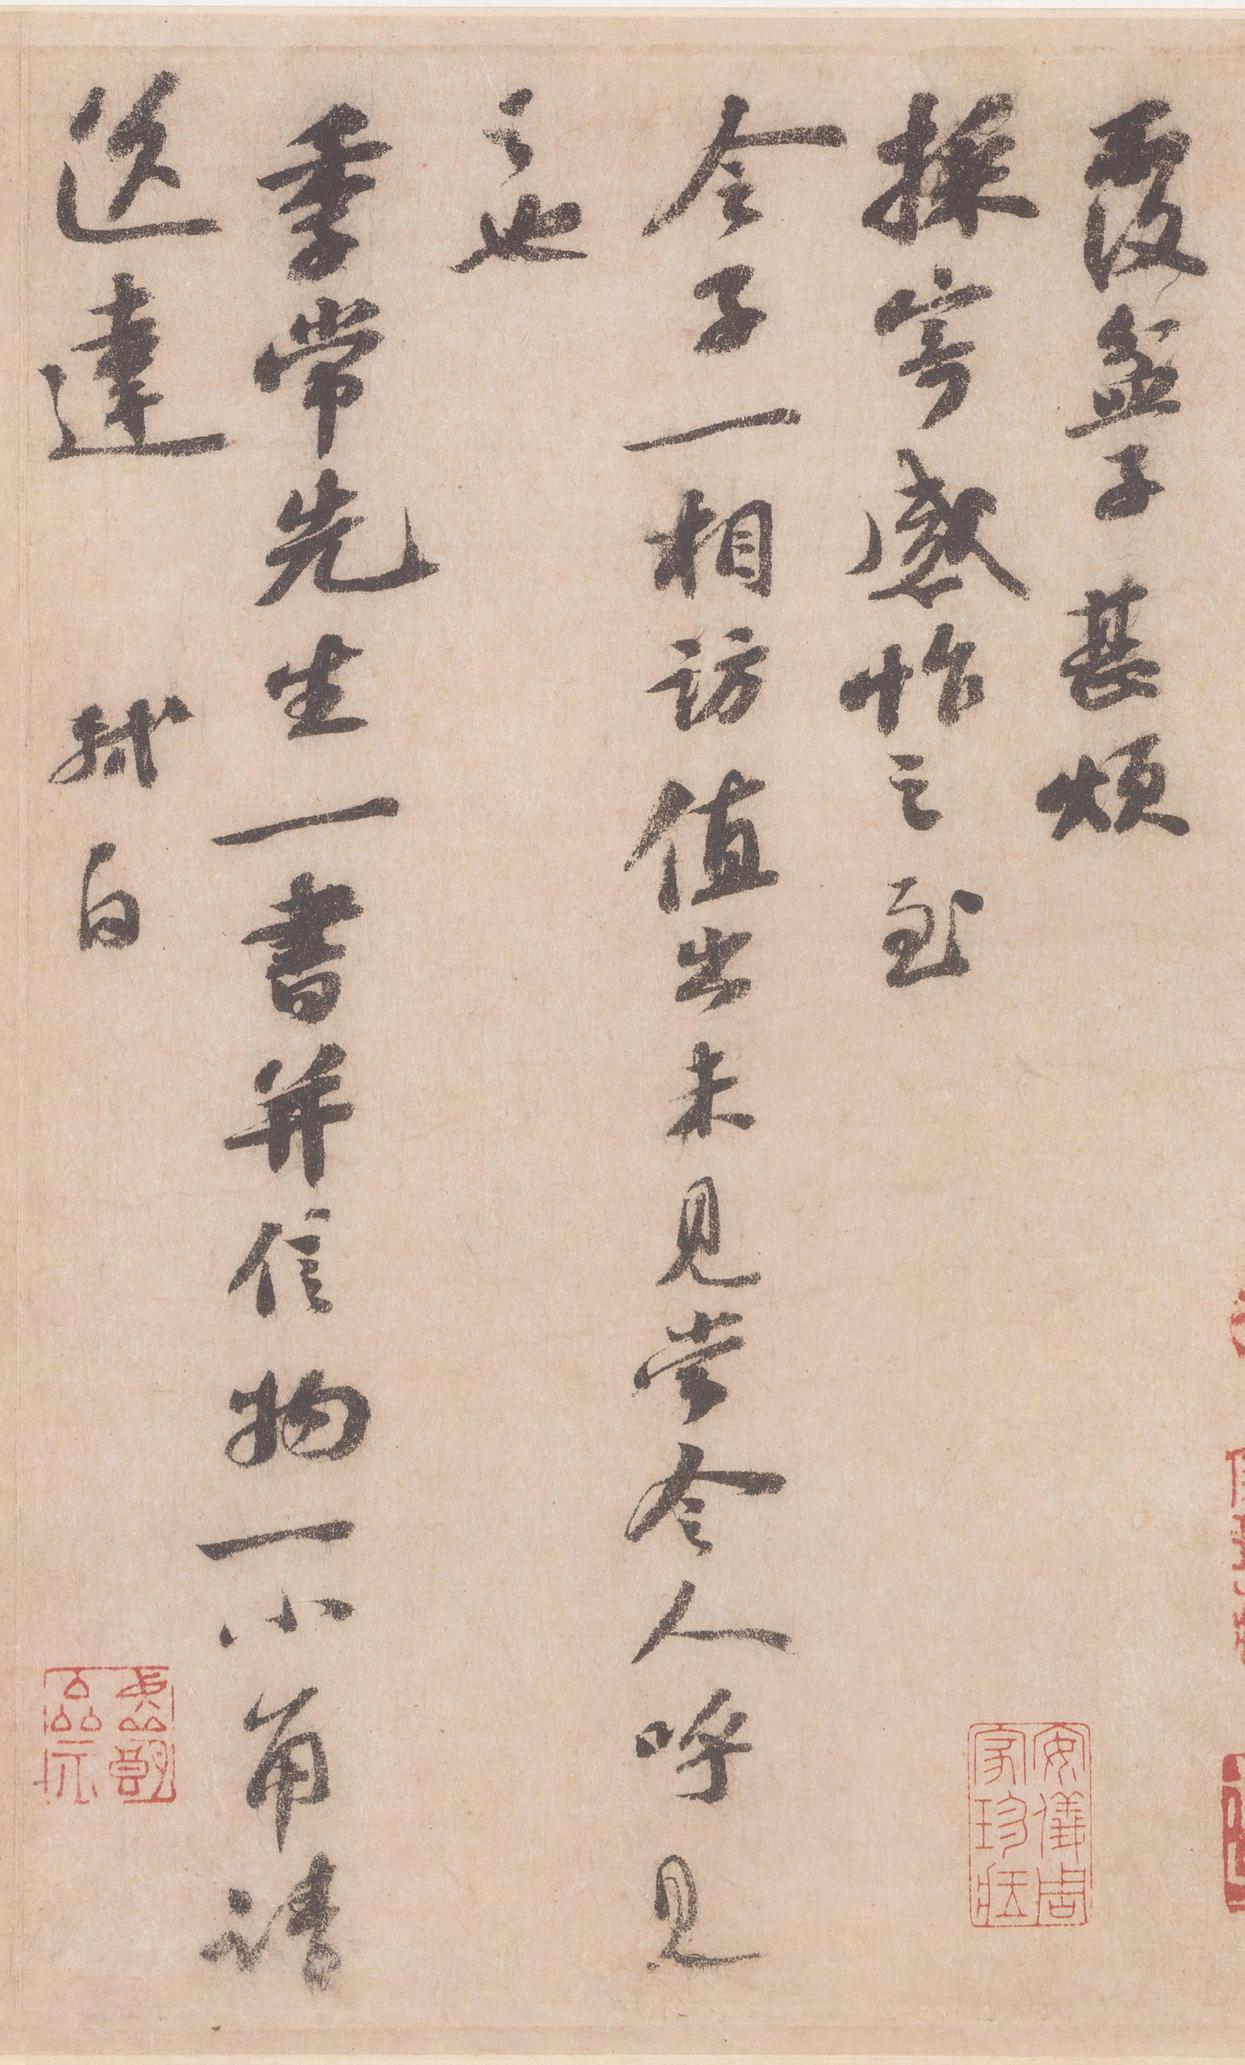 覆盆子甚煩
採寄感怍之至
令子一相訪值出未見當令人呼見
之也
季常先生一書并信物一小角請
送達　　軾白
安儀周
家珍藏